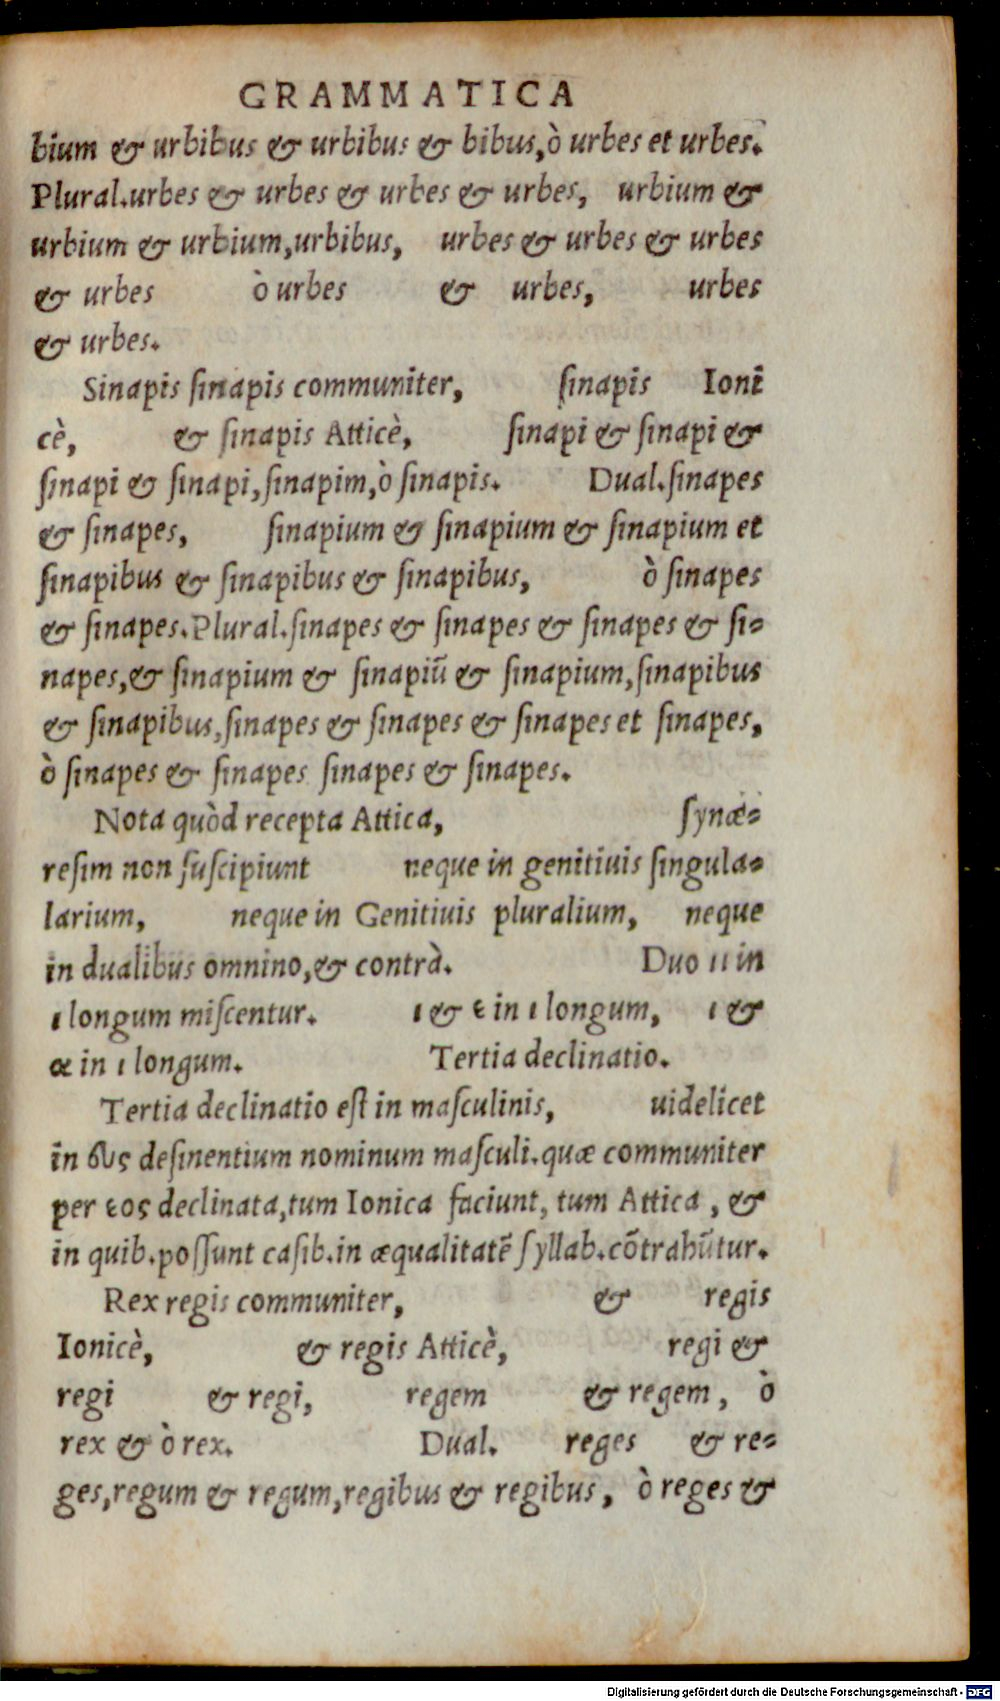 GRAMMATICA
bium & urbibus & urbibus & bibus,ò urbes et urbes.
Plural.urbes & urbes & urbes & urbes, urbium &
urbium & urbium,urbibus, urbes & urbes & urbes
& urbes ò urbes & urbes, urbes
& urbes.
Sinapis ſinapis communiter, ſinapis Ioni
cè, & ſinapis Atticè, ſinapi & ſinapi &
ſinapi & ſinapi,ſinapim,ò ſinapis. Dual.ſinapes
& ſinapes, ſinapium & ſinapium & ſinapium et
ſinapibus & ſinapibus & ſinapibus, ò ſinapes
& ſinapes.Plural.ſinapes & ſinapes & ſinapes & ſi-
napes,& ſinapium & ſinapiū & ſinapium,ſinapibus
& ſinapibus,ſinapes & ſinapes & ſinapes et ſinapes,
ò ſinapes & ſinapes ſinapes & ſinapes.
Nota quòd recepta Attica, ſynæ-
reſim non ſuſcipiunt neque in genitiuis ſingula-
larium, neque in Genitiuis pluralium, neque
in dualibus omnino,& contrà. Duo ιι in
ι longum miſcentur. ι & ε in ι longum, ι &
α in ι longum. Tertia declinatio.
Tertia declinatio eſt in maſculinis, uidelicet
in ευς deſinentium nominum maſculi.quæ communiter
per εος declinata,tum Ionica faciunt, tum Attica , &
in quib.poſſunt caſib.in æqualitatē ſyllab.cōtrahūtur.
Rex regis communiter, & regis
Ionicè, & regis Atticè, regi &
regi & regi, regem & regem , ò
rex & ò rex. Dual. reges & re-
ges,regum & regum,regibus & regibus , ò reges &
Digitalisierung gefördert durch die Deutsche Forschungsgemeinschaft - DFG